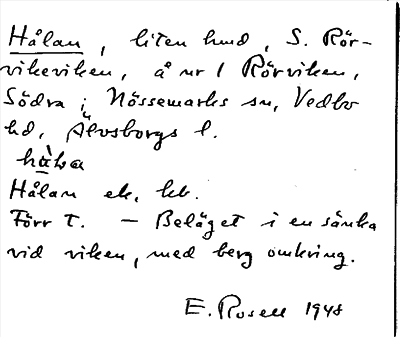 Hålan, liten hmd, S. Rör-
vikeviken, å nr 1 Rörviken,
Södra i Nössemarks sn, Vedbo
hd, Älvsborgs l.
Hålan ek. kb.
Förr T. — Beläget i en sänka
vid viken, med berg omkring.
E. Rosell 1948